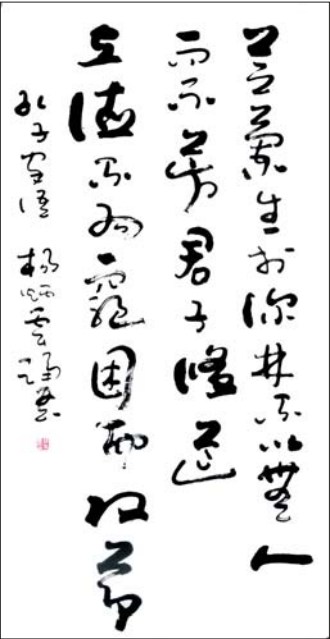 芝蘭生於深林不以無人
而不芳君子修道
立德不為窮困而改節
孔子家語 楊炳云